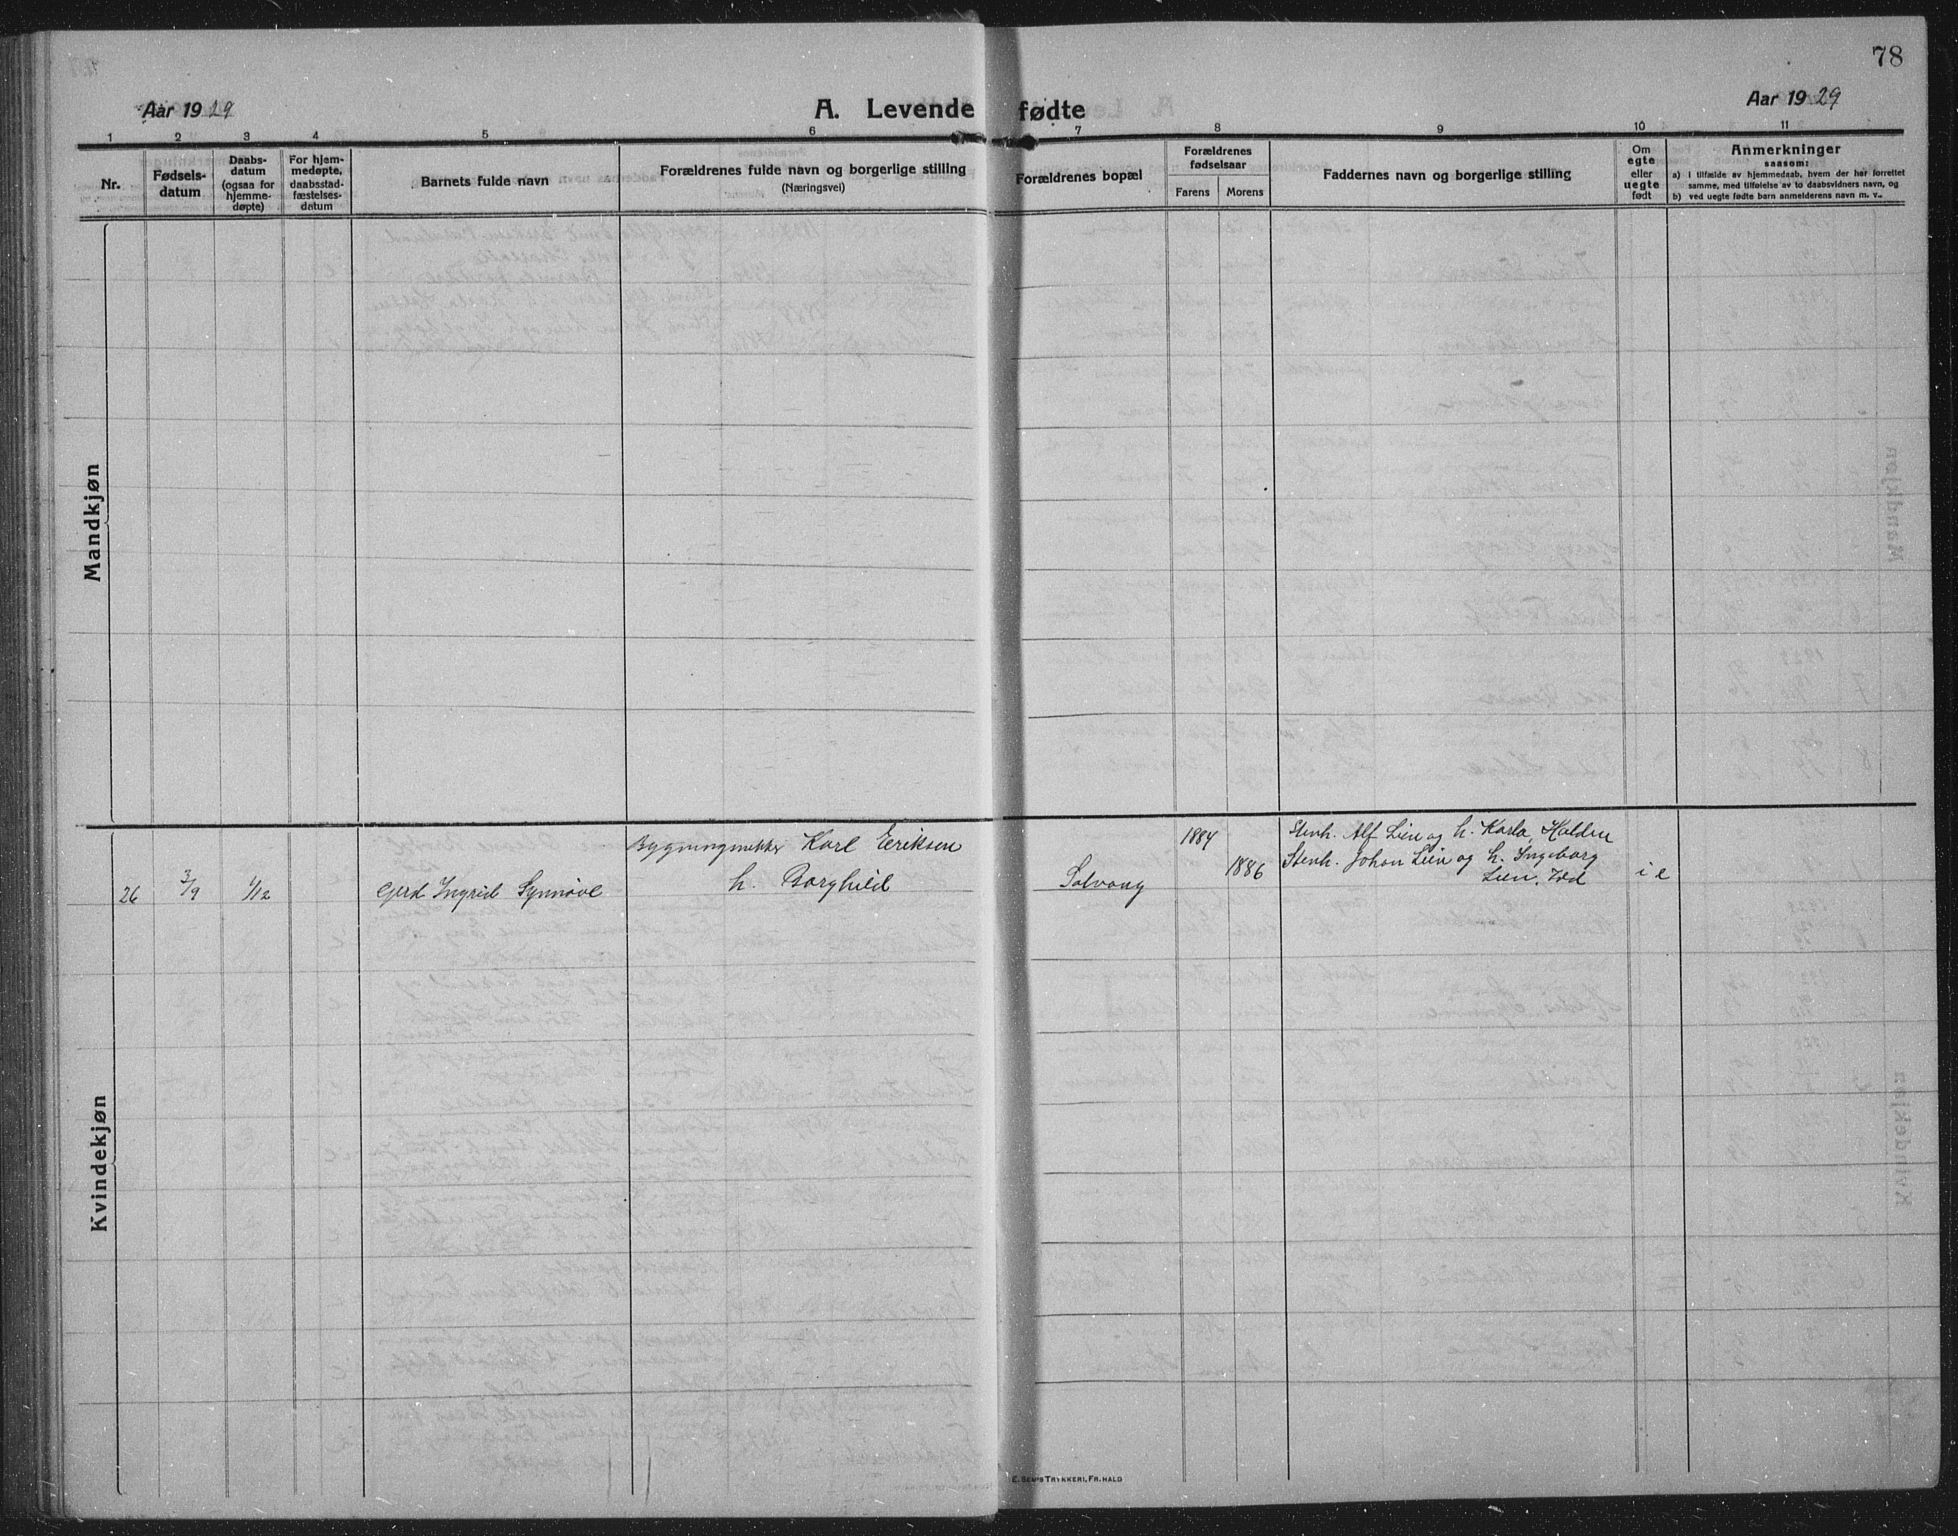 78
Aar 1929
A. Levende fødte
Aar 1929
1 2 3 4 5 6 7 8 9 10 11
Nr.
Fødsels-
datum
Daabs-
datum
(ogsaa for
hjemme-
døpte)
For hjem-
medøpte,
daabsstad-
fæstelses-
datum
Barnets fulde navn
Forældrenes fulde navn og borgerlige stilling
(Næringsvei)
Forældrenes bopæl
Forældrenes
fødselsaar
Farens Morens
Faddernes navn og borgerlige stilling
Om
egte
eller
uegte
født
Anmerkninger
saasom:
a) i tilfælde av hjemmedaab, hvem der har forrettet
samme, med tilføielse av to daabsvidners navn, og
b) ved uegte fødte barn anmelderens navn m. v.
Mandkjøn
Kvindekjøn
26 3/9 1/12 Gerd Ingrid Synnøve
Karl Eriksen
h. Borghild
Solvang
1884
1886
Stenh. Alf Lien og h. Karla, Halden
Stenh. Johan Lien og h. Ingeborg
Lien, Idd
i e
E. Sem's Trykkeri, Fr.hald